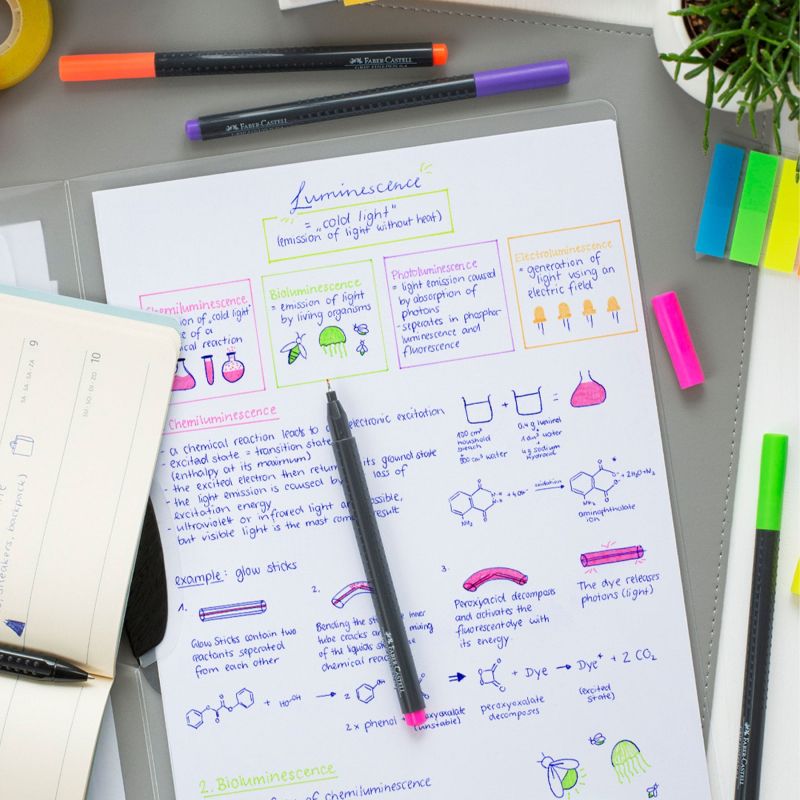 FABER-CASTELL
FABER-CASTELL
Luminescence
= "cold light"
(emission of light without heat)
Chemiluminescence
of „cold light"
of a
reaction
Bioluminescence
= emission of light
by living organisms
Photoluminescence
= light emission caused
by absorption of
photons
- seperates in phosphor-
luminescence and
fluorescence
Electroluminescence
= generation of
light using an
electric field
Chemiluminescence
- a chemical reaction leads to electronic excitation
- excited state = transition state
(enthalpy at its maximum)
- the excited electron then its ground state
- the light emission is caused loss of
excitation energy
- ultraviolet or infrared light
but visible light is the most result
+ =
100 cm³
household
bleach
+
900 cm³ water
0.4g luminol
+
1 dm³ water
+
4g sodium
oxidation
aminophthalate
ion
example: glow sticks
1.
Glow Sticks contain two
reactants seperated
from each other
2.
Bending the inner
tube cracks mixing
of the liquids
chemical
3.
Peroxyacid decomposes
and activates the
fluorescent dye with
its energy.
The dye releases
photons (light)
+ HO-OH → 2
⇒ + Dye → Dye* + 2 CO₂
2 x phenol +
(unstable)
peroxyoxalate
decomposes
(excited
state)
2. Bioluminescence
of chemiluminescence
9
10
FABER-CASTELL
FABER-CASTELL